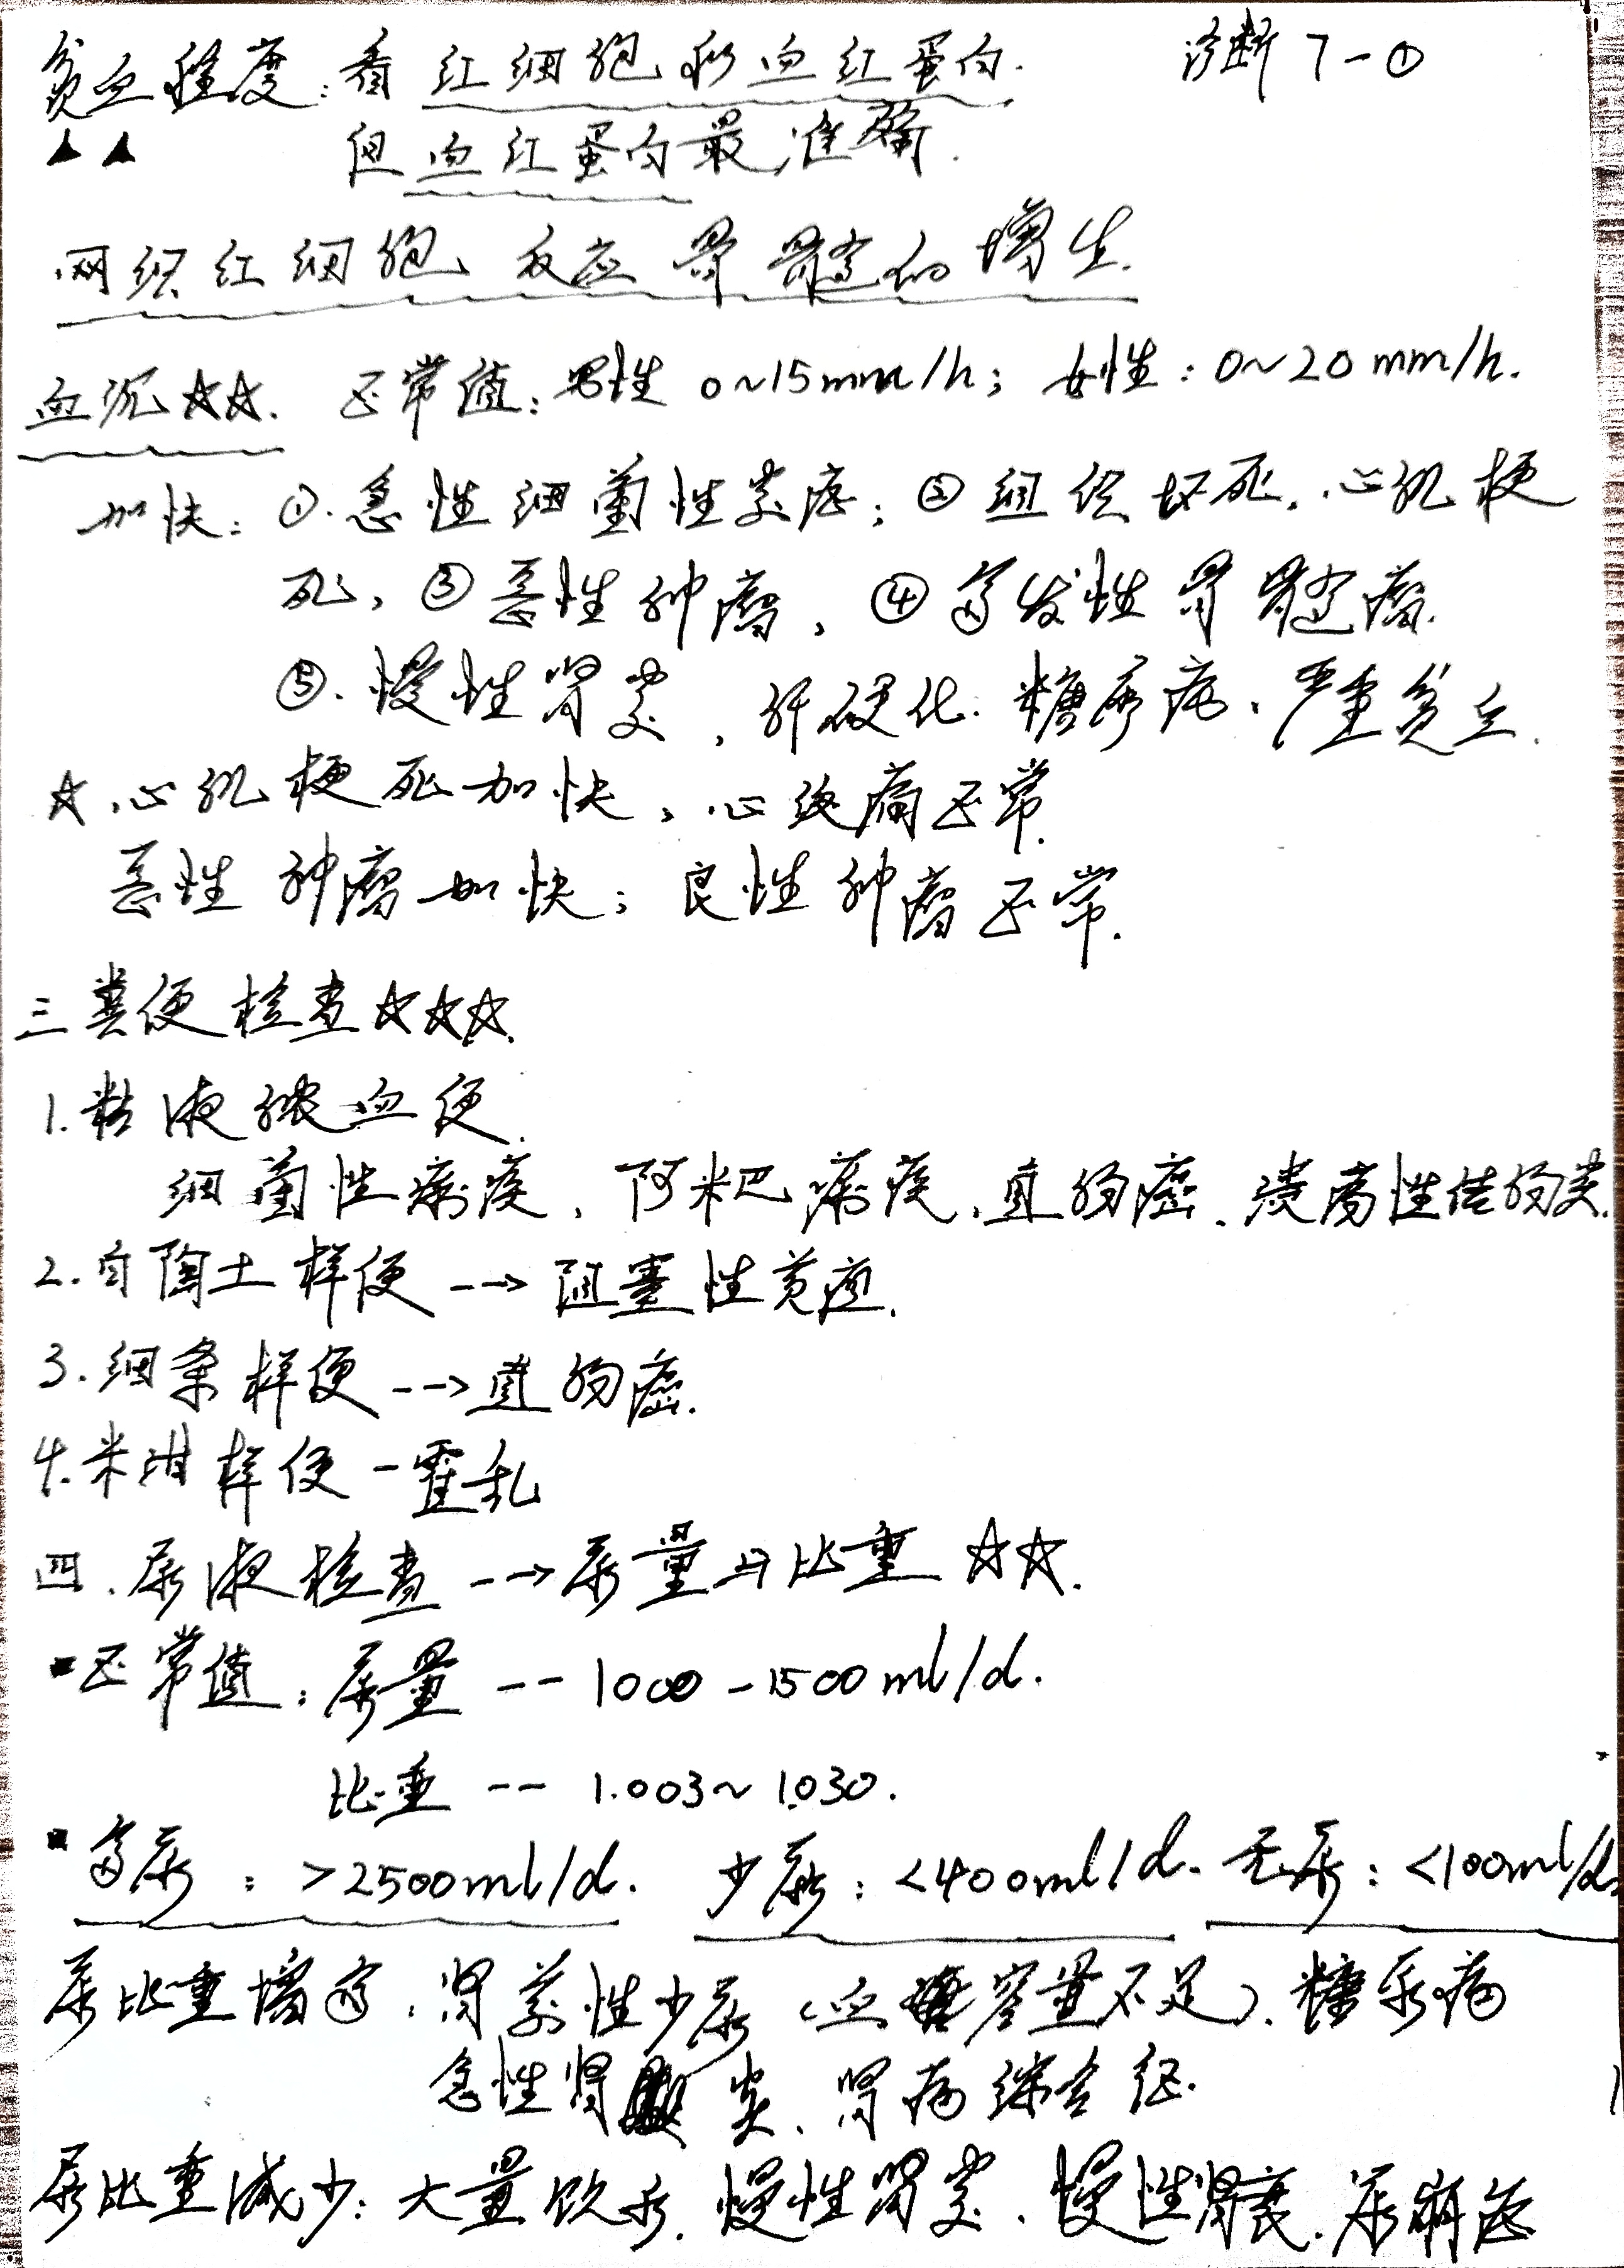 贫血程度：看红细胞和血红蛋白. 诊断7-①
但血红蛋白最准确.
网织红细胞反应骨髓的增生.
血沉☆☆. 正常值：男性 0~15mm/h；女性：0~20mm/h.
加快：①.急性细菌性炎症；②组织坏死.心肌梗
死，③恶性肿瘤，④多发性骨髓瘤.
⑤.慢性肾炎，肝硬化.糖尿病、严重贫血.
☆心肌梗死加快，心绞痛正常.
恶性肿瘤加快；良性肿瘤正常.
三粪便检查☆☆☆.
1.粘液脓血便.
细菌性痢疾、阿米巴痢疾、直肠癌、溃疡性结肠炎.
2.白陶土样便-->阻塞性黄疸.
3.细条样便-->直肠癌.
4.米泔样便-霍乱
四.尿液检查-->尿量与比重☆☆.
正常值：尿量--1000-1500ml/d.
比重--1.003~1.030.
多尿：>2500ml/d. 少尿：<400ml/d. 无尿：<100ml/d.
尿比重增高.肾前性少尿（血容量不足）、糖尿病
急性肾炎、肾病综合征.
尿比重减少：大量饮水.慢性肾炎.慢性肾衰.尿崩症